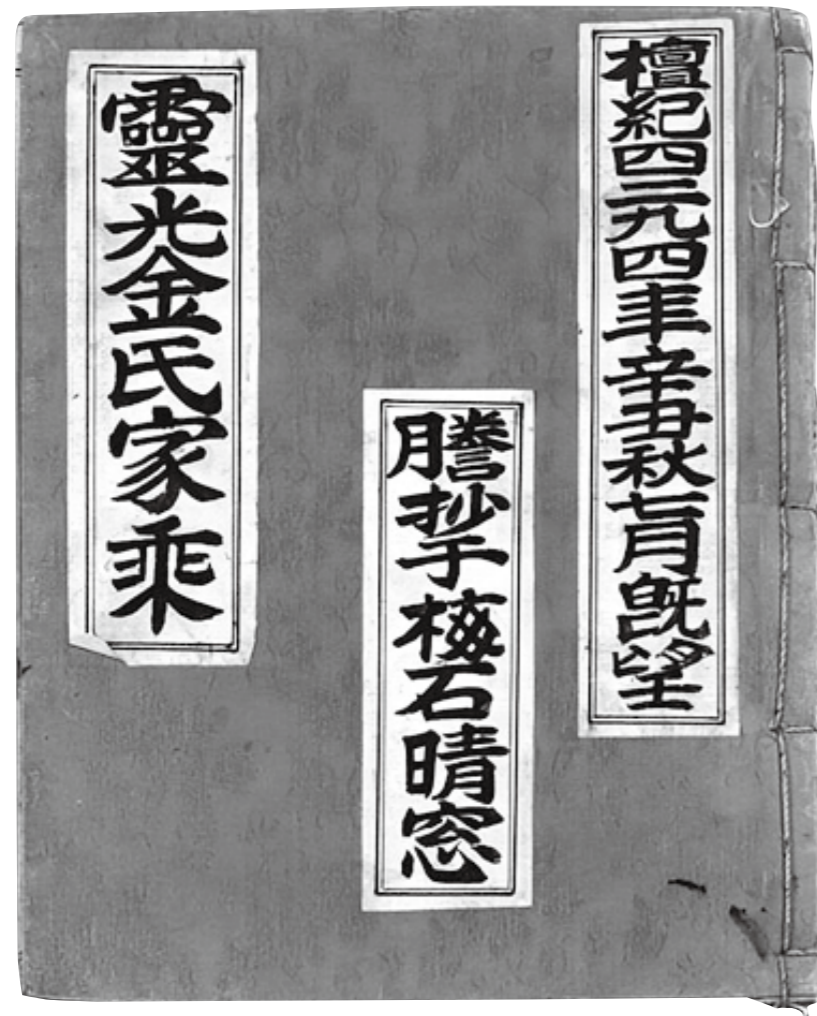 檀紀四二九四年辛丑秋七月旣望
謄抄于梅石晴窓
靈光金氏家乘